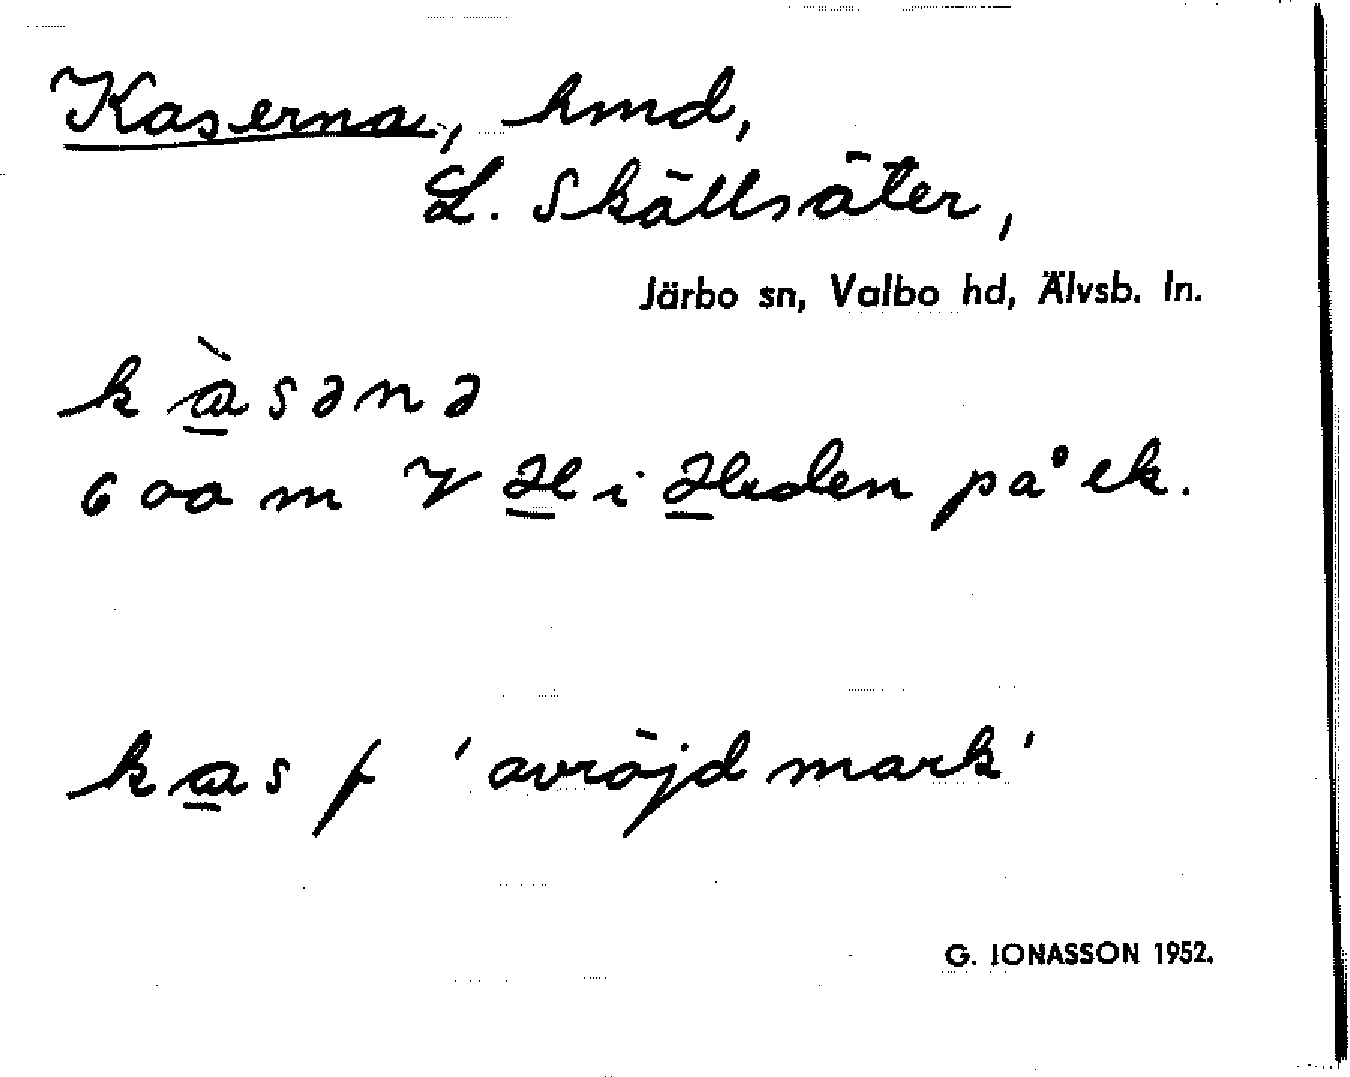 Kaserna, hmd,
L. Skällsäter,
Järbo sn, Valbo hd, Älvsb. ln.
kàsənə
600 m V på ek.
kas f 'avröjd mark'
G. JONASSON 1952.